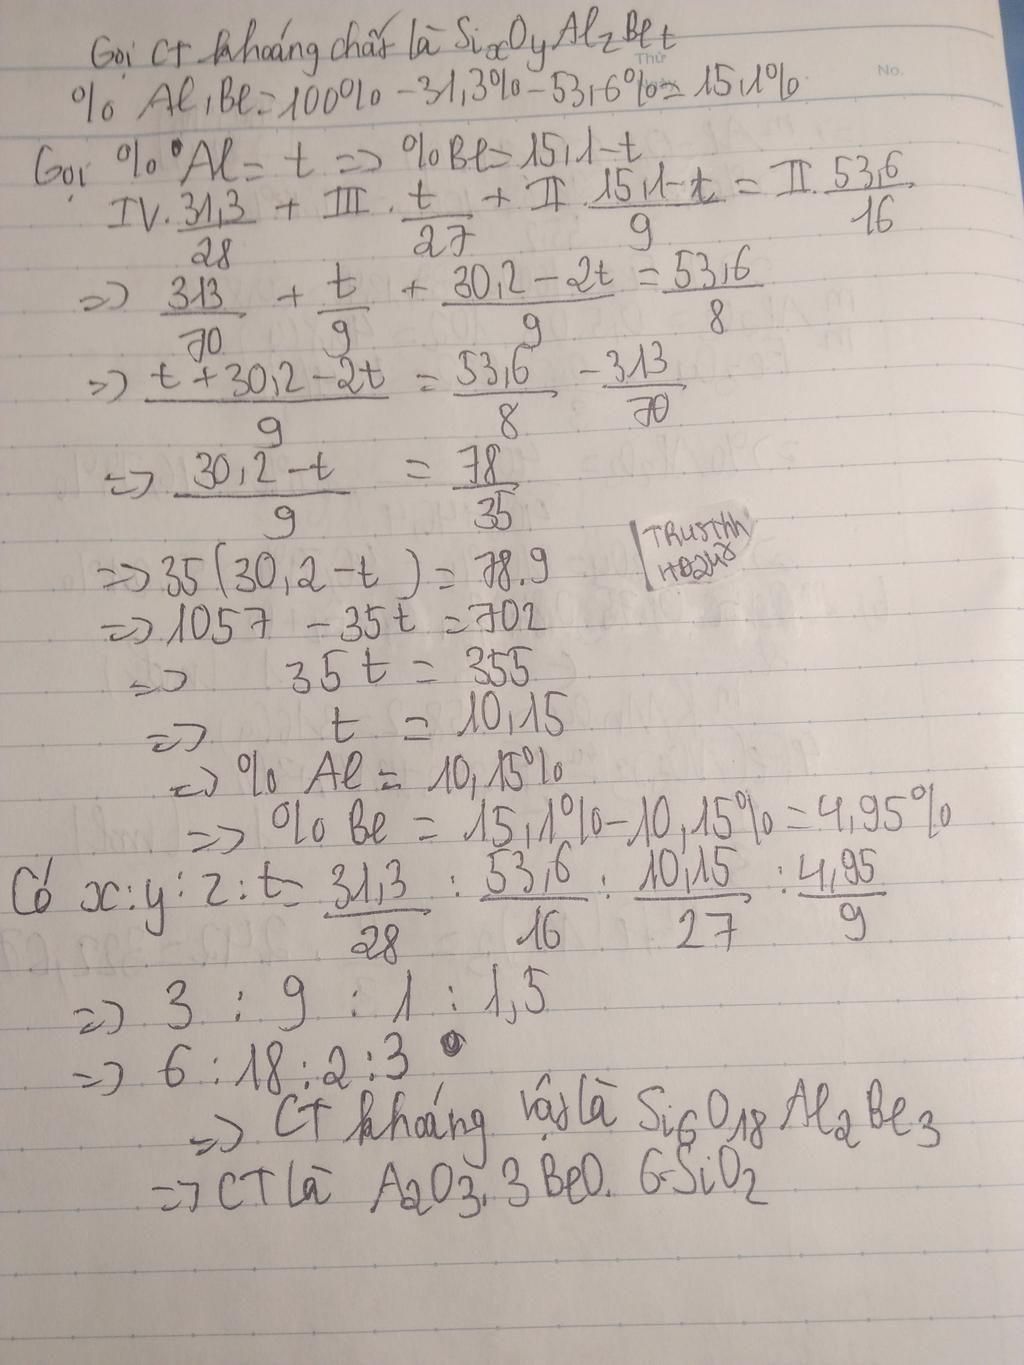 Gọi CT khoáng chất là SixOyAlzBet
Thứ
No.
% Al, Be = 100% - 31,3% - 53,6% = 15,1%
Gọi % Al = t => % Be = 15,1 - t
IV. 31,3/28 + III. t/27 + II. 15,1-t/9 = II. 53,6/16
=> 313/70 + t/9 + 30,2-2t/9 = 53,6/8
=> t+30,2-2t/9 = 53,6/8 - 313/70
=> 30,2-t/9 = 78/35
TRUSThh
=> 35(30,2-t) = 78.9
=> 1057 - 35t = 702
=> 35t = 355
=> t = 10,15
=> % Al = 10,15%
=> % Be = 15,1% - 10,15% = 4,95%
Có x:y:z:t = 31,3/28 : 53,6/16 : 10,15/27 : 4,95/9
=> 3 : 9 : 1 : 1,5
=> 6 : 18 : 2 : 3
=> CT khoáng vật là Si6O18Al2Be3
=> CT là A2O3. 3BeO. 6SiO2